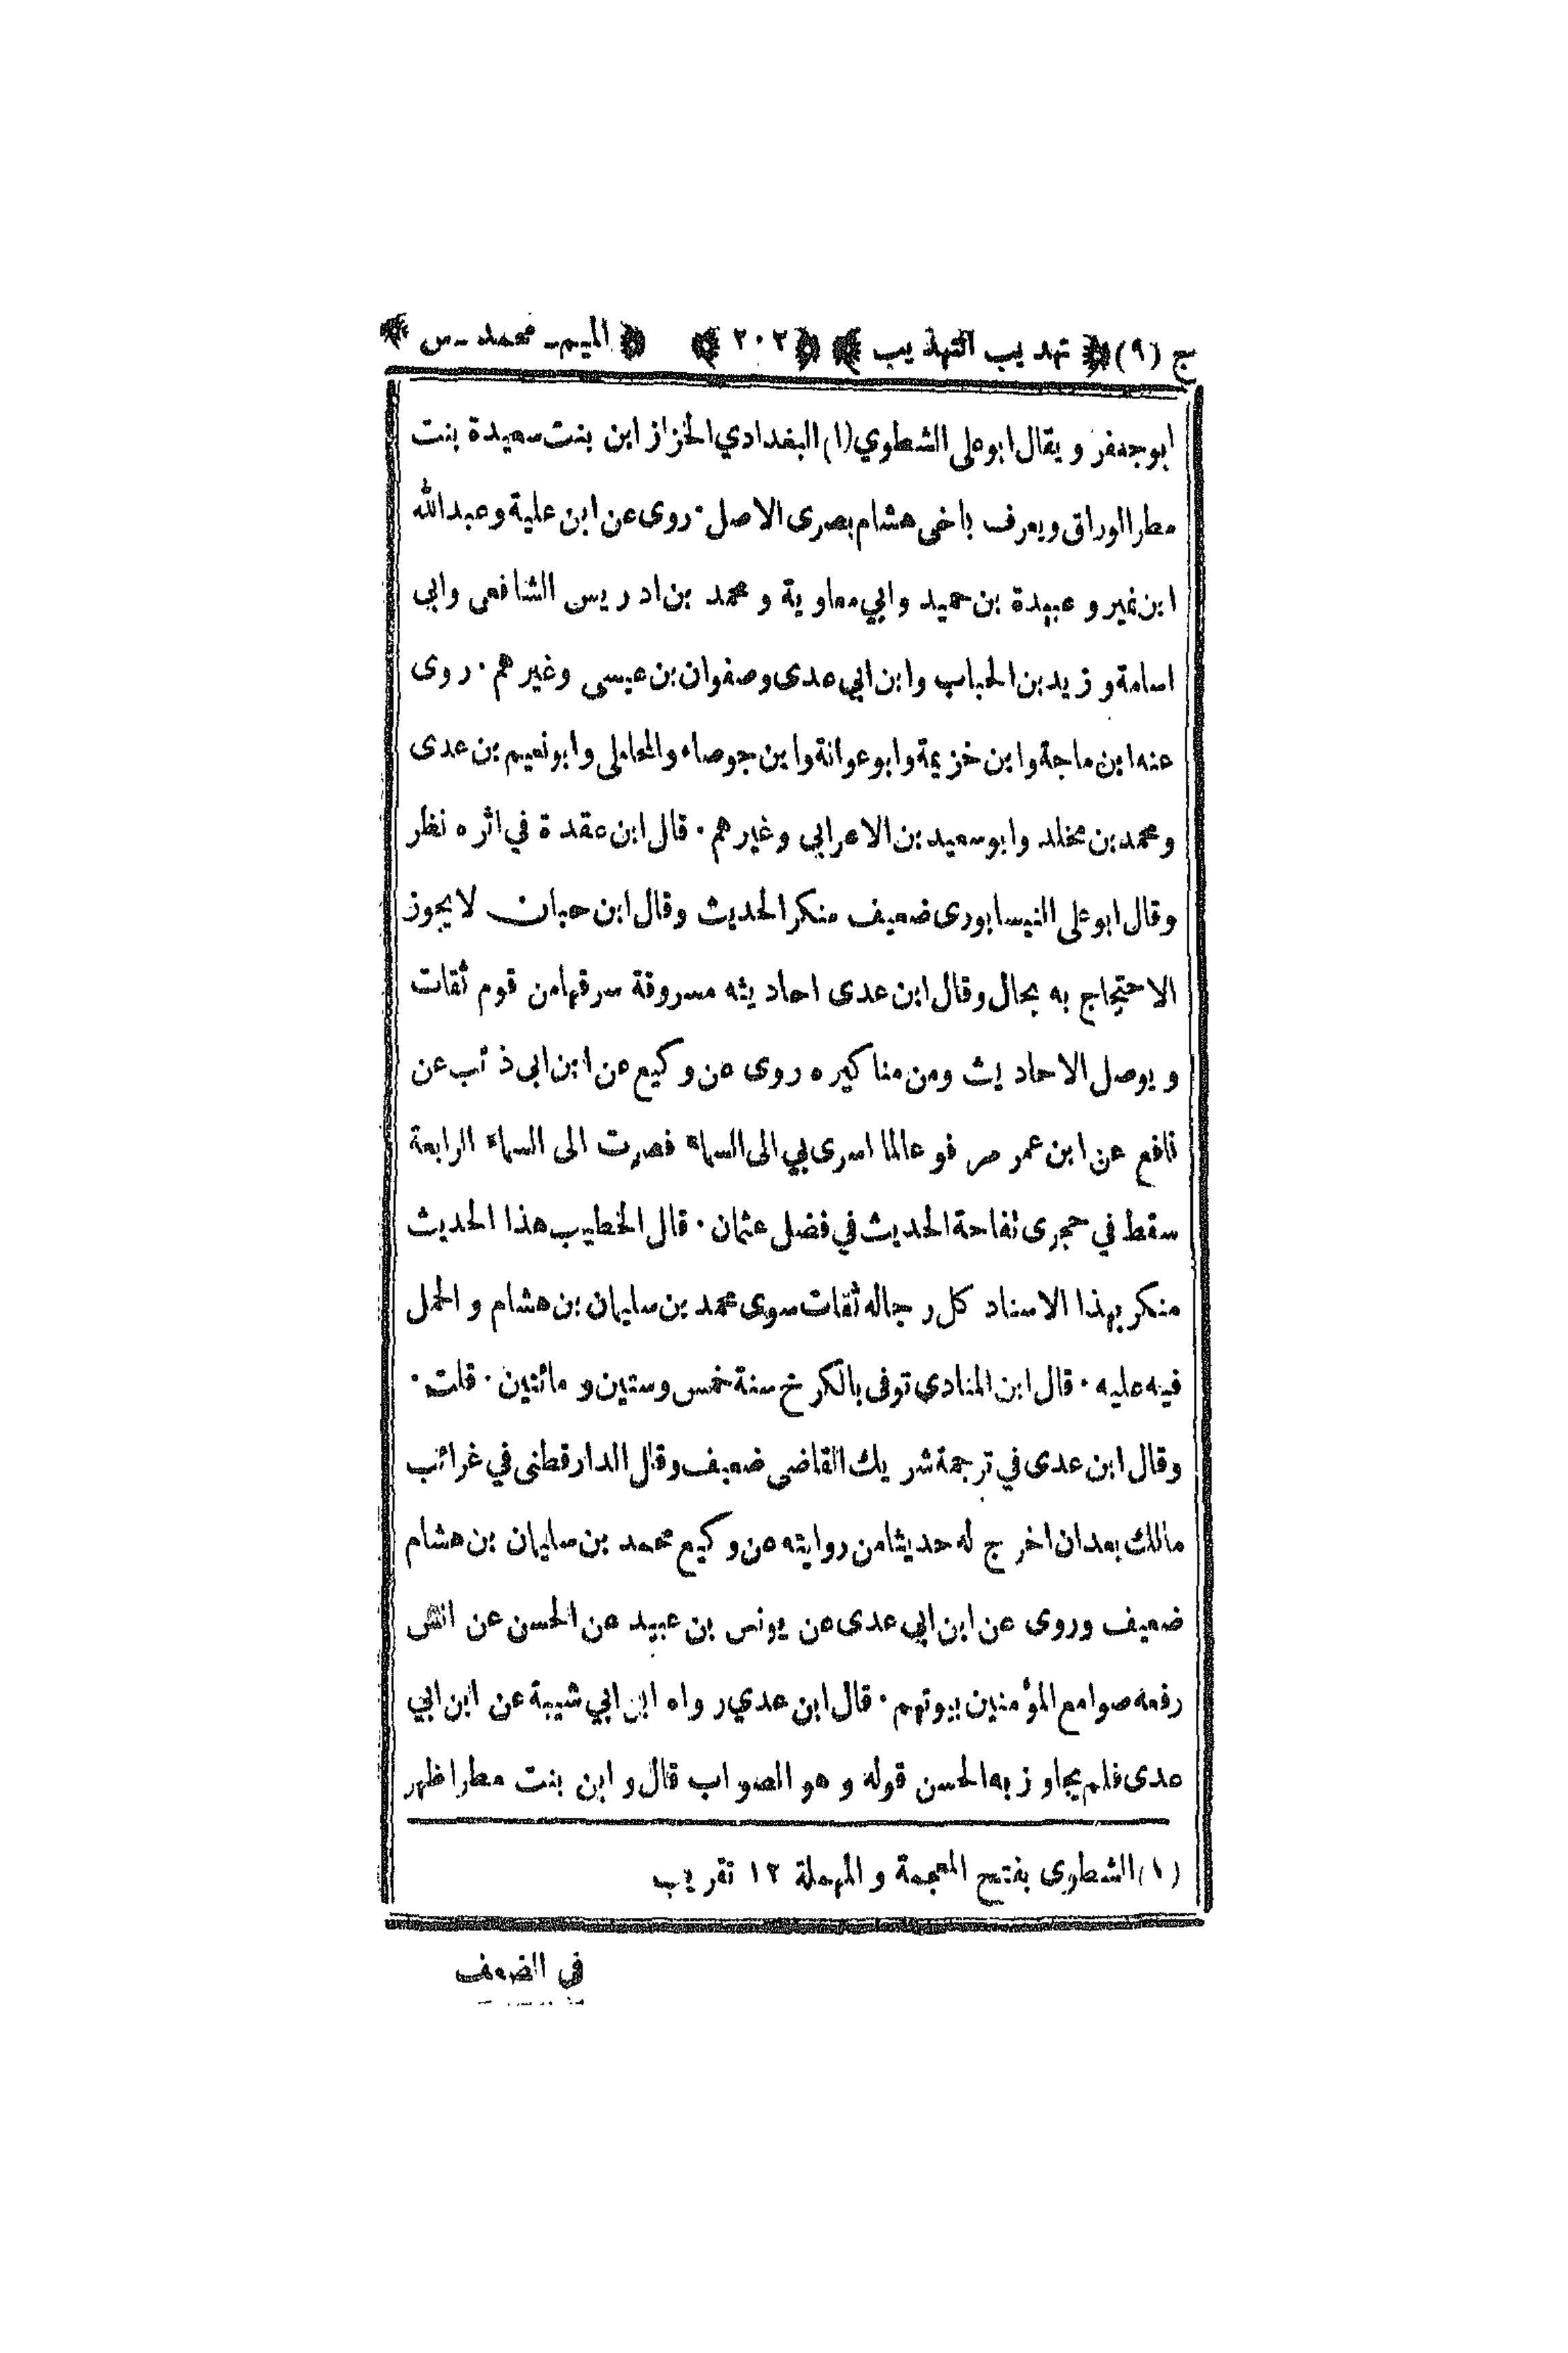 ج (٩) ﴿ تهذيب التهذيب ﴾ ﴿ ٢٠٢ ﴾ ﴿ الميم - محمد - س ﴾
ابو جعفر و يقال ابو على الشطوي (١) البغدادي الخزاز ابن بنت سعيدة بنت
مطر الوراق ويعرف باخى هشام بصرى الاصل · روى عن ابن علية وعبدالله
ابن نمير و عبيدة بن حميد وابي معاوية و محمد بن ادريس الشافعى وابي
اسامة و زيد بن الحباب وابن ابي عدى وصفوان بن عيسى وغيرهم · روى
عنه ابن ماجة وابن خزيمة وابو عوانة وابن جوصاء والمحاملى وابو نعيم بن عدى
ومحمد بن مخلد وابو سعيد بن الاعرابي وغيرهم · قال ابن عقدة في اثره نظر
وقال ابو على النيسابورى ضعيف منكر الحديث وقال ابن حبان لايجوز
الاحتجاج به بحال وقال ابن عدى احاديثه مسروقة سرقها من قوم ثقات
و يوصل الاحاديث ومن مناكيره روى عن وكيع عن ابن ابى ذئب عن
نافع عن ابن عمر مرفوعا لما اسرى بي الى السماء فصرت الى السماء الرابعة
سقط في حجرى تفاحة الحديث في فضل عثمان · قال الخطيب هذا الحديث
منكر بهذا الاسناد كل رجاله ثقات سوى محمد بن سليمان بن هشام و الحمل
فيه عليه · قال ابن المنادي توفى بالكرخ سنة خمس وستين و مائتين · قلت ·
وقال ابن عدى في ترجمة شريك القاضى ضعيف وقال الدارقطنى في غرائب
مالك بعد ان اخرج له حديثا من روايته عن وكيع محمد بن سليمان بن هشام
ضعيف وروى عن ابن ابي عدى عن يونس بن عبيد عن الحسن عن انس
رفعه صوامع المؤمنين بيوتهم · قال ابن عدي رواه ابن ابي شيبة عن ابن ابي
عدى فلم يجاوز به الحسن قوله و هو الصواب قال و ابن بنت مطر اظهر
(١) الشطوى بفتح المعجمة و المهملة ١٢ تقريب
في الضعف